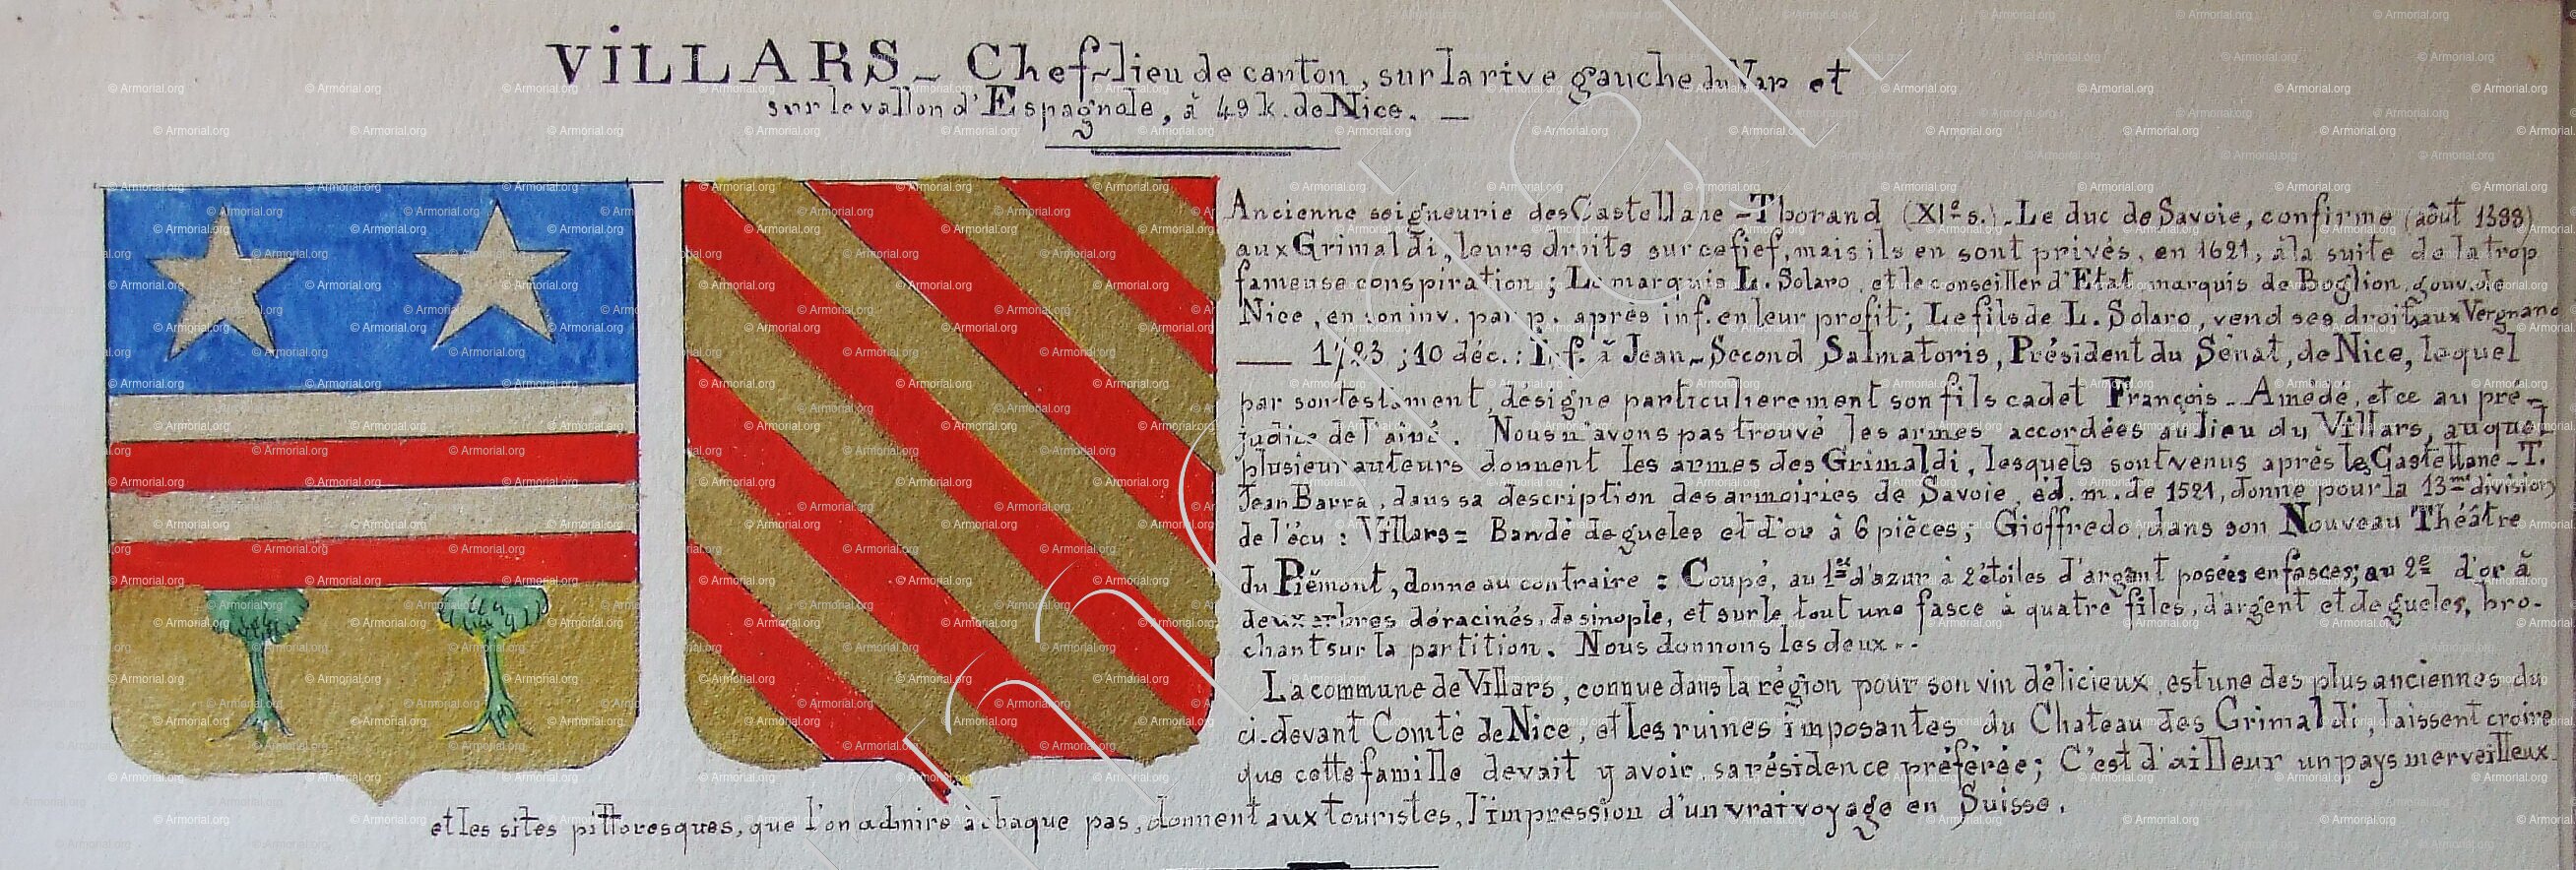 VILLARS - Chef-lieu de canton, sur la rive gauche du Var et
sur le vallon d'Espagnole, à 49 k. de Nice. —
Ancienne seigneurie des Castellane - Thorand (XIe s.) - Le duc de Savoie, confirme (août 1388)
aux Grimaldi, leurs droits sur ce fief, mais ils en sont privés, en 1621, à la suite de la trop
fameuse conspiration ; Le marquis L. Solaro, et le conseiller d'Etat marquis de Boglion, gouv. de
Nice, en son inv. par p. après inf. en leur profit ; Le fils de L. Solaro, vend ses droits aux Vergnano
— 1723 ; 10 déc. : Inf. à Jean-Second Salmatoris, Président du Sénat, de Nice, lequel
par son testament, désigne particulièrement son fils cadet François - Amédé, et ce au pré-
judice de l'ainé. Nous n'avons pas trouvé les armes accordées au lieu du Villars, auquel
plusieur auteurs donnent les armes des Grimaldi, lesquels sont venus après les Castellane - T.
Jean Barra, dans sa description des armoiries de Savoie, éd. m. de 1521, donne pour la 13me division
de l'écu : Villars = Bandé de gueles et d'or à 6 pièces ; Gioffredo, dans son Nouveau Théâtre
du Piémont, donne au contraire : Coupé, au 1er d'azur à 2 étoiles d'argent posées en fasces ; au 2e d'or à
deux arbres déracinés, de sinople, et sur le tout une fasce à quatre files, d'argent et de gueles, bro-
chant sur la partition. Nous donnons les deux..
La commune de Villars, connue dans la région pour son vin délicieux, est une des plus anciennes du
ci-devant Comté de Nice, et les ruines imposantes du Chateau des Grimaldi, laissent croire
que cette famille devait y avoir sa résidence préférée ; C'est d'ailleur un pays merveilleux
et les sites pittoresques, que l'on admire a chaque pas, donnent aux touristes, l'impression d'un vrai voyage en Suisse.
© Armorial.org